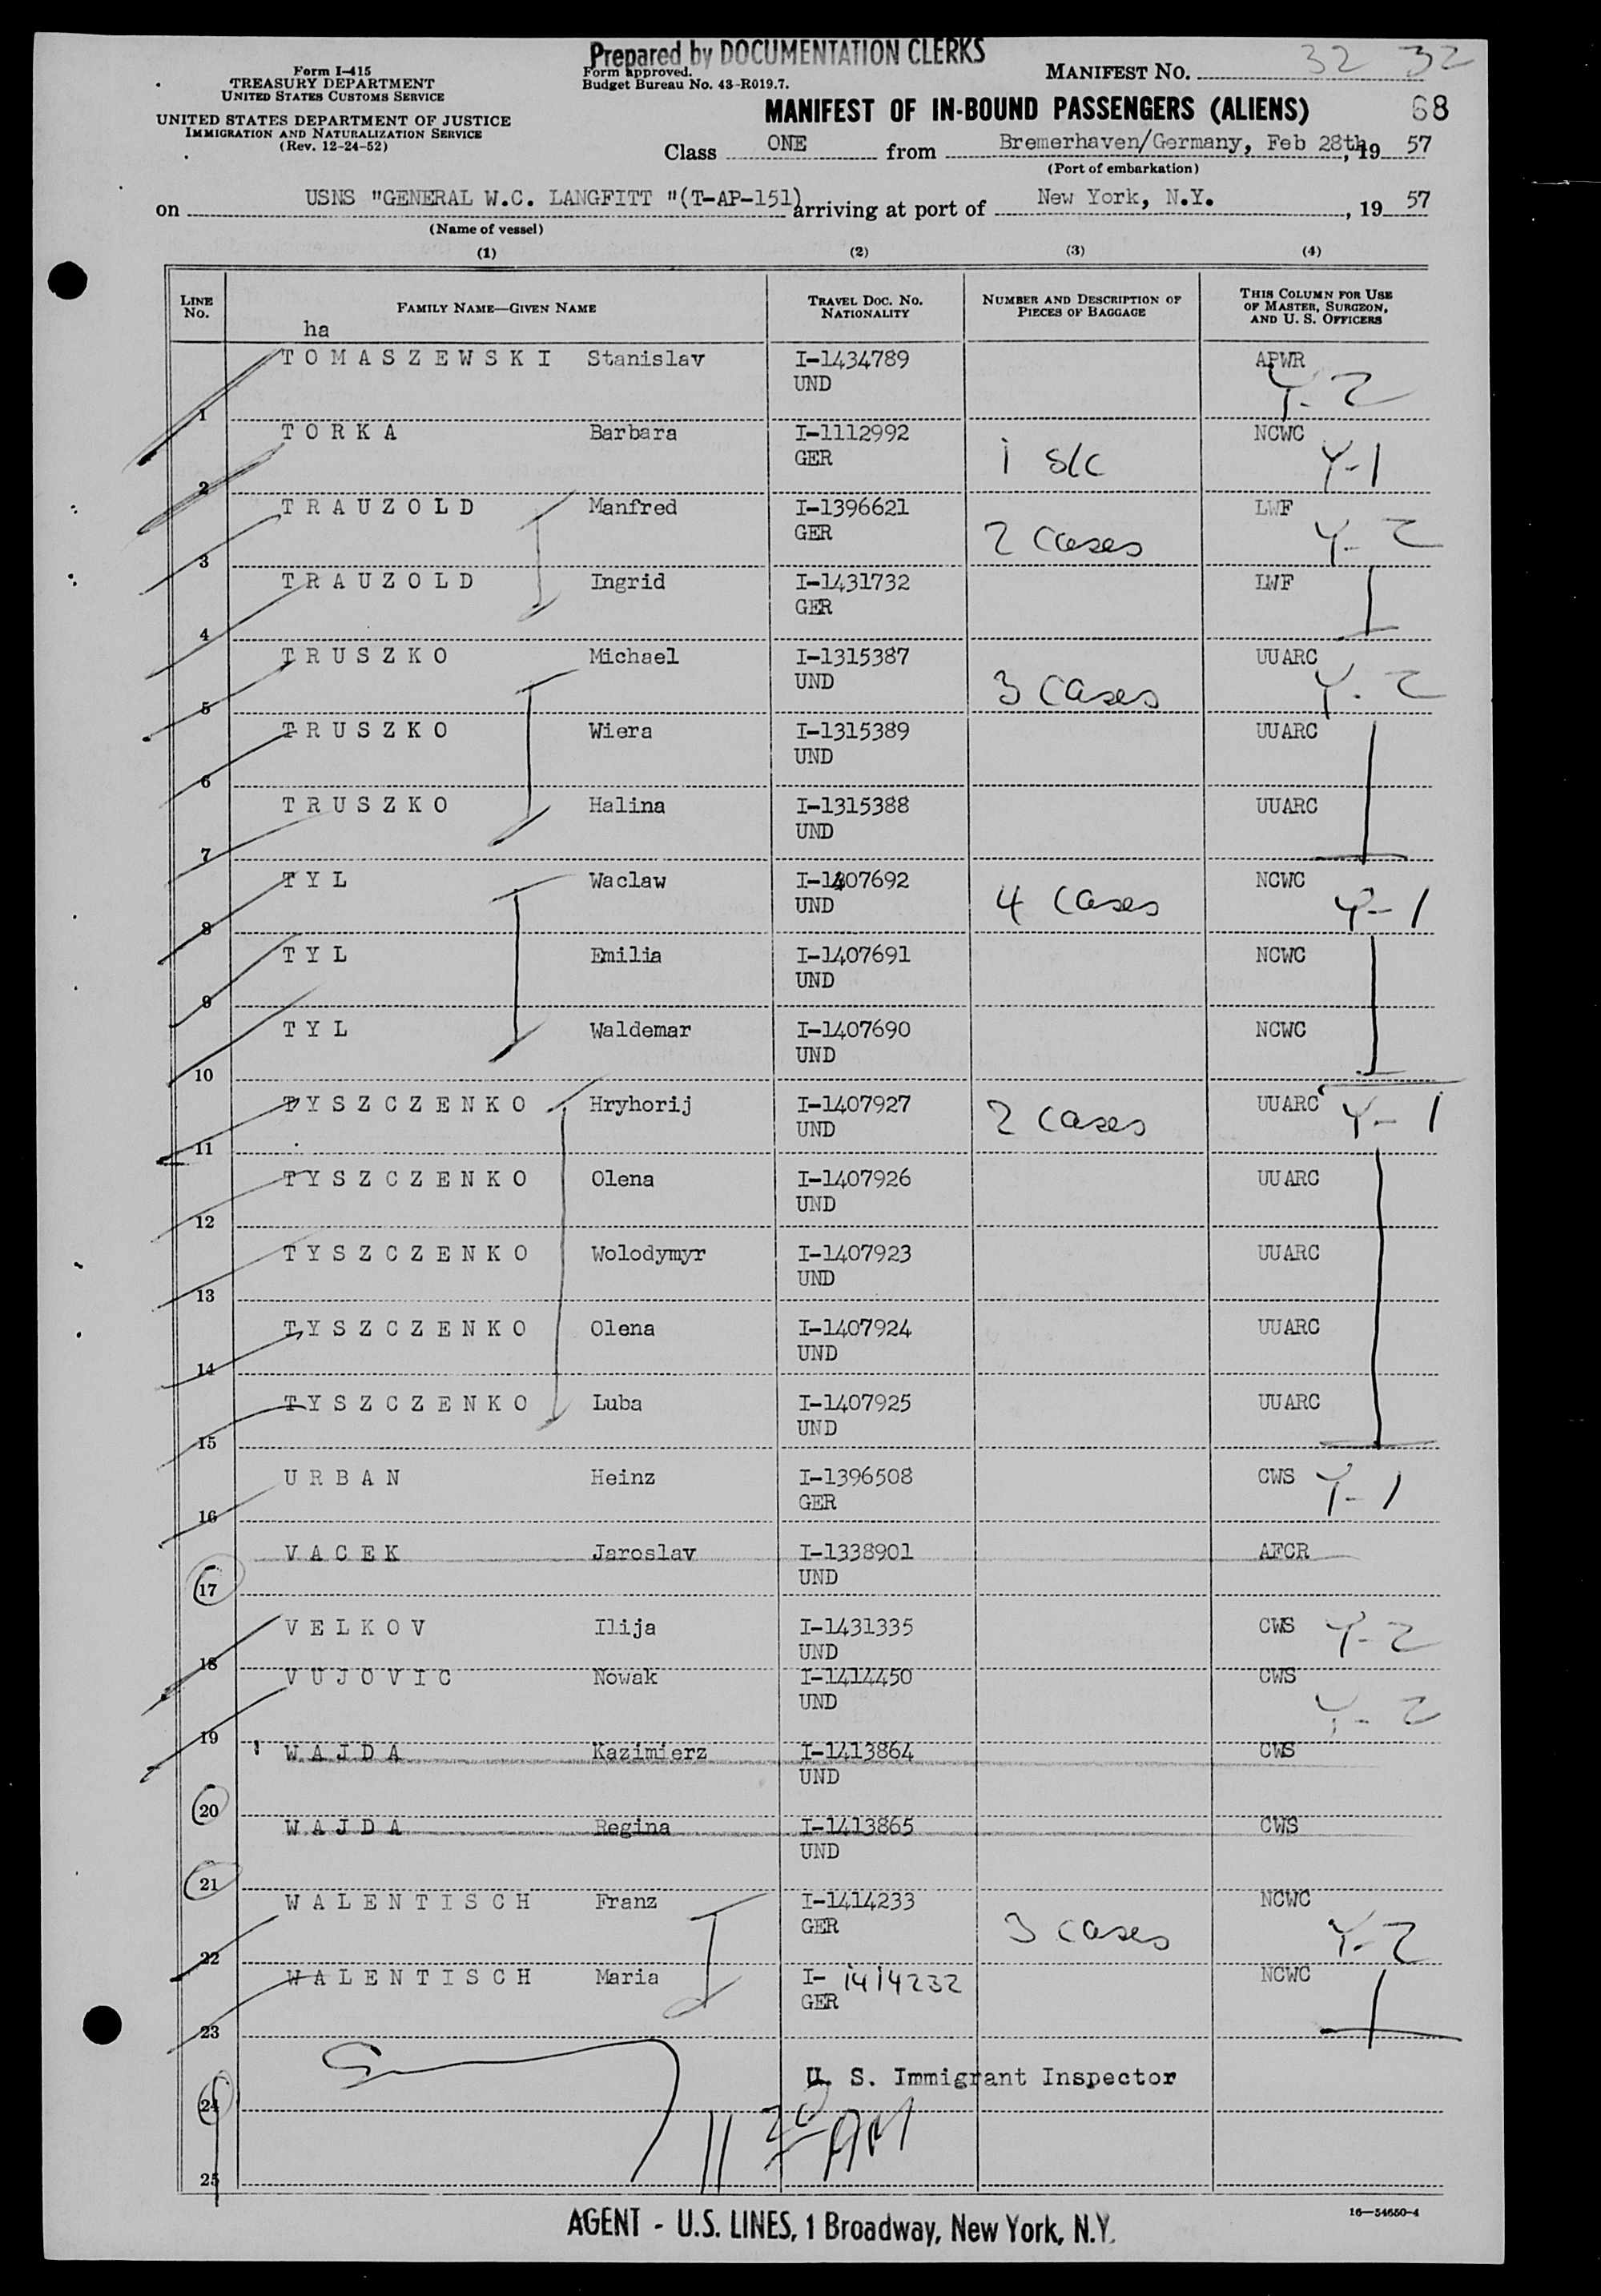 Prepared by DOCUMENTATION CLERKS
Form I-415
TREASURY DEPARTMENT
UNITED STATES CUSTOMS SERVICE
UNITED STATES DEPARTMENT OF JUSTICE
IMMIGRATION AND NATURALIZATION SERVICE
(Rev. 12-24-52)
Form approved.
Budget Bureau No. 43-R019.7.
MANIFEST NO. 32 32
MANIFEST OF IN-BOUND PASSENGERS (ALIENS) 68
Class ONE from Bremerhaven/Germany, Feb 28th, 19 57
(Port of embarkation)
on USNS "GENERAL W.C. LANGFITT "(T-AP-151) arriving at port of New York, N.Y. , 19 57
(Name of vessel)
(1) (2) (3) (4)
LINE No. FAMILY NAME—GIVEN NAME TRAVEL DOC. NO. NATIONALITY NUMBER AND DESCRIPTION OF PIECES OF BAGGAGE THIS COLUMN FOR USE OF MASTER, SURGEON, AND U. S. OFFICERS
ha
TOMASZEWSKI Stanislav I-1434789 APWR
1 UND Y-2
TORKA Barbara I-1112992 NCWC
2 GER 1 S/C Y-1
TRAUZOLD Manfred I-1396621 LWF
3 GER 2 Cases Y-2
TRAUZOLD Ingrid I-1431732 LWF
4 GER
TRUSZKO Michael I-1315387 UUARC
5 UND 3 Cases Y-2
TRUSZKO Wiera I-1315389 UUARC
6 UND
TRUSZKO Halina I-1315388 UUARC
7 UND
TYL Waclaw I-1407692 NCWC
8 UND 4 Cases Y-1
TYL Emilia I-1407691 NCWC
9 UND
TYL Waldemar I-1407690 NCWC
10 UND
TYSZCZENKO Hryhorij I-1407927 UUARC
11 UND 2 Cases Y-1
TYSZCZENKO Olena I-1407926 UUARC
12 UND
TYSZCZENKO Wolodymyr I-1407923 UUARC
13 UND
TYSZCZENKO Olena I-1407924 UUARC
14 UND
TYSZCZENKO Luba I-1407925 UUARC
15 UND
URBAN Heinz I-1396508 CWS Y-1
16 GER
VACEK Jaroslav I-1338901 AFCR
17 UND
VELKOV Ilija I-1431335 CWS Y-2
18 UND
VUJOVIC Nowak I-1414450 CWS
19 UND Y-2
WAJDA Kazimierz I-1413864 CWS
20 UND
WAJDA Regina I-1413865 CWS
21 UND
WALENTISCH Franz I-1414233 NCWC
22 GER 3 Cases Y-2
WALENTISCH Maria I-1414232 NCWC
23 GER
U. S. Immigrant Inspector
24
11 30 AM
25
AGENT - U.S. LINES, 1 Broadway, New York, N.Y.
16—54650-4